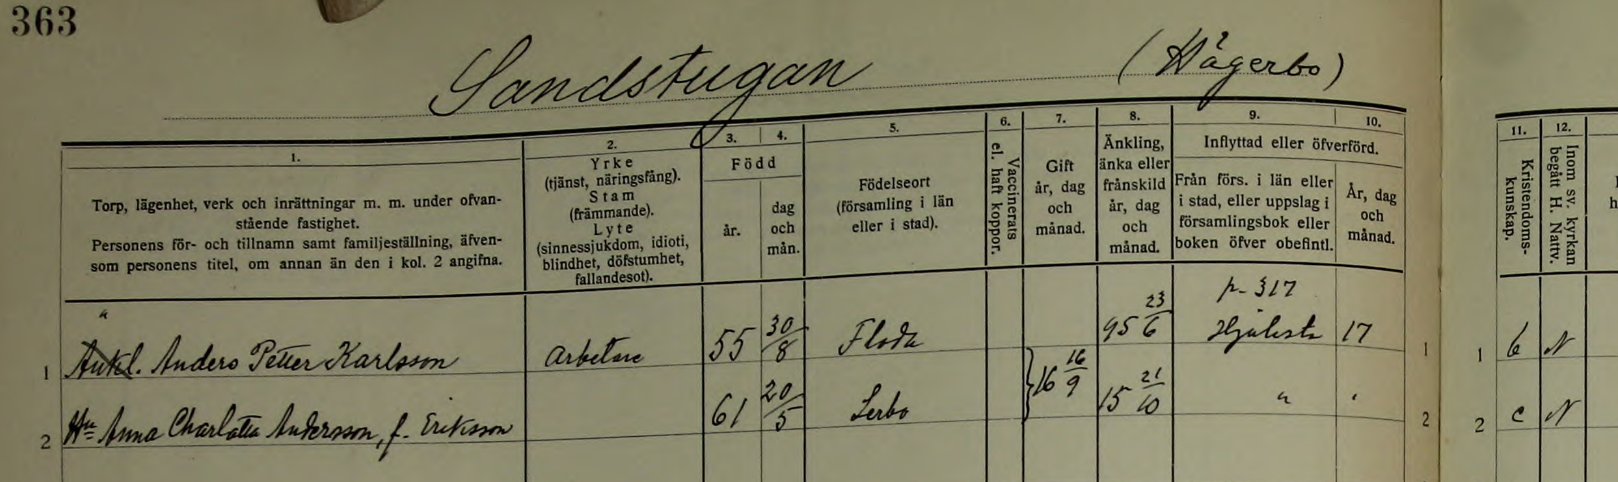 363
Sandstugan (Hägerbo)
1. 2. 3. 4. 5. 6. 7. 8. 9. 10. 11. 12.
Torp, lägenhet, verk och inrättningar m. m. under ofvan-
stående fastighet.
Personens för- och tillnamn samt familjeställning, äfven-
som personens titel, om annan än den i kol. 2 angifna.
Yrke
(tjänst, näringsfång).
Stam
(främmande).
Lyte
(sinnessjukdom, idioti,
blindhet, döfstumhet,
fallandesot).
Född
år.
dag
och
mån.
Födelseort
(församling i län
eller i stad).
Vaccinerats
el. haft koppor.
Gift
år, dag
och
månad.
Änkling,
änka eller
frånskild
år, dag
och
månad.
Inflyttad eller öfverförd.
Från förs. i län eller
i stad, eller uppslag i
församlingsbok eller
boken öfver obefintl.
År, dag
och
månad.
Kristendoms-
kunskap.
Inom sv. kyrkan
begått H. Nattv.
p. 317
1 Änkl. Anders Petter Karlsson Arbetare 55 30/8 Floda 95 23/6 17 1 1 b N
2 Hu Anna Charlotta Andersson, f. Eriksson 61 20/5 Lerbo 16 16/9 15 21/10 " " 2 2 c N